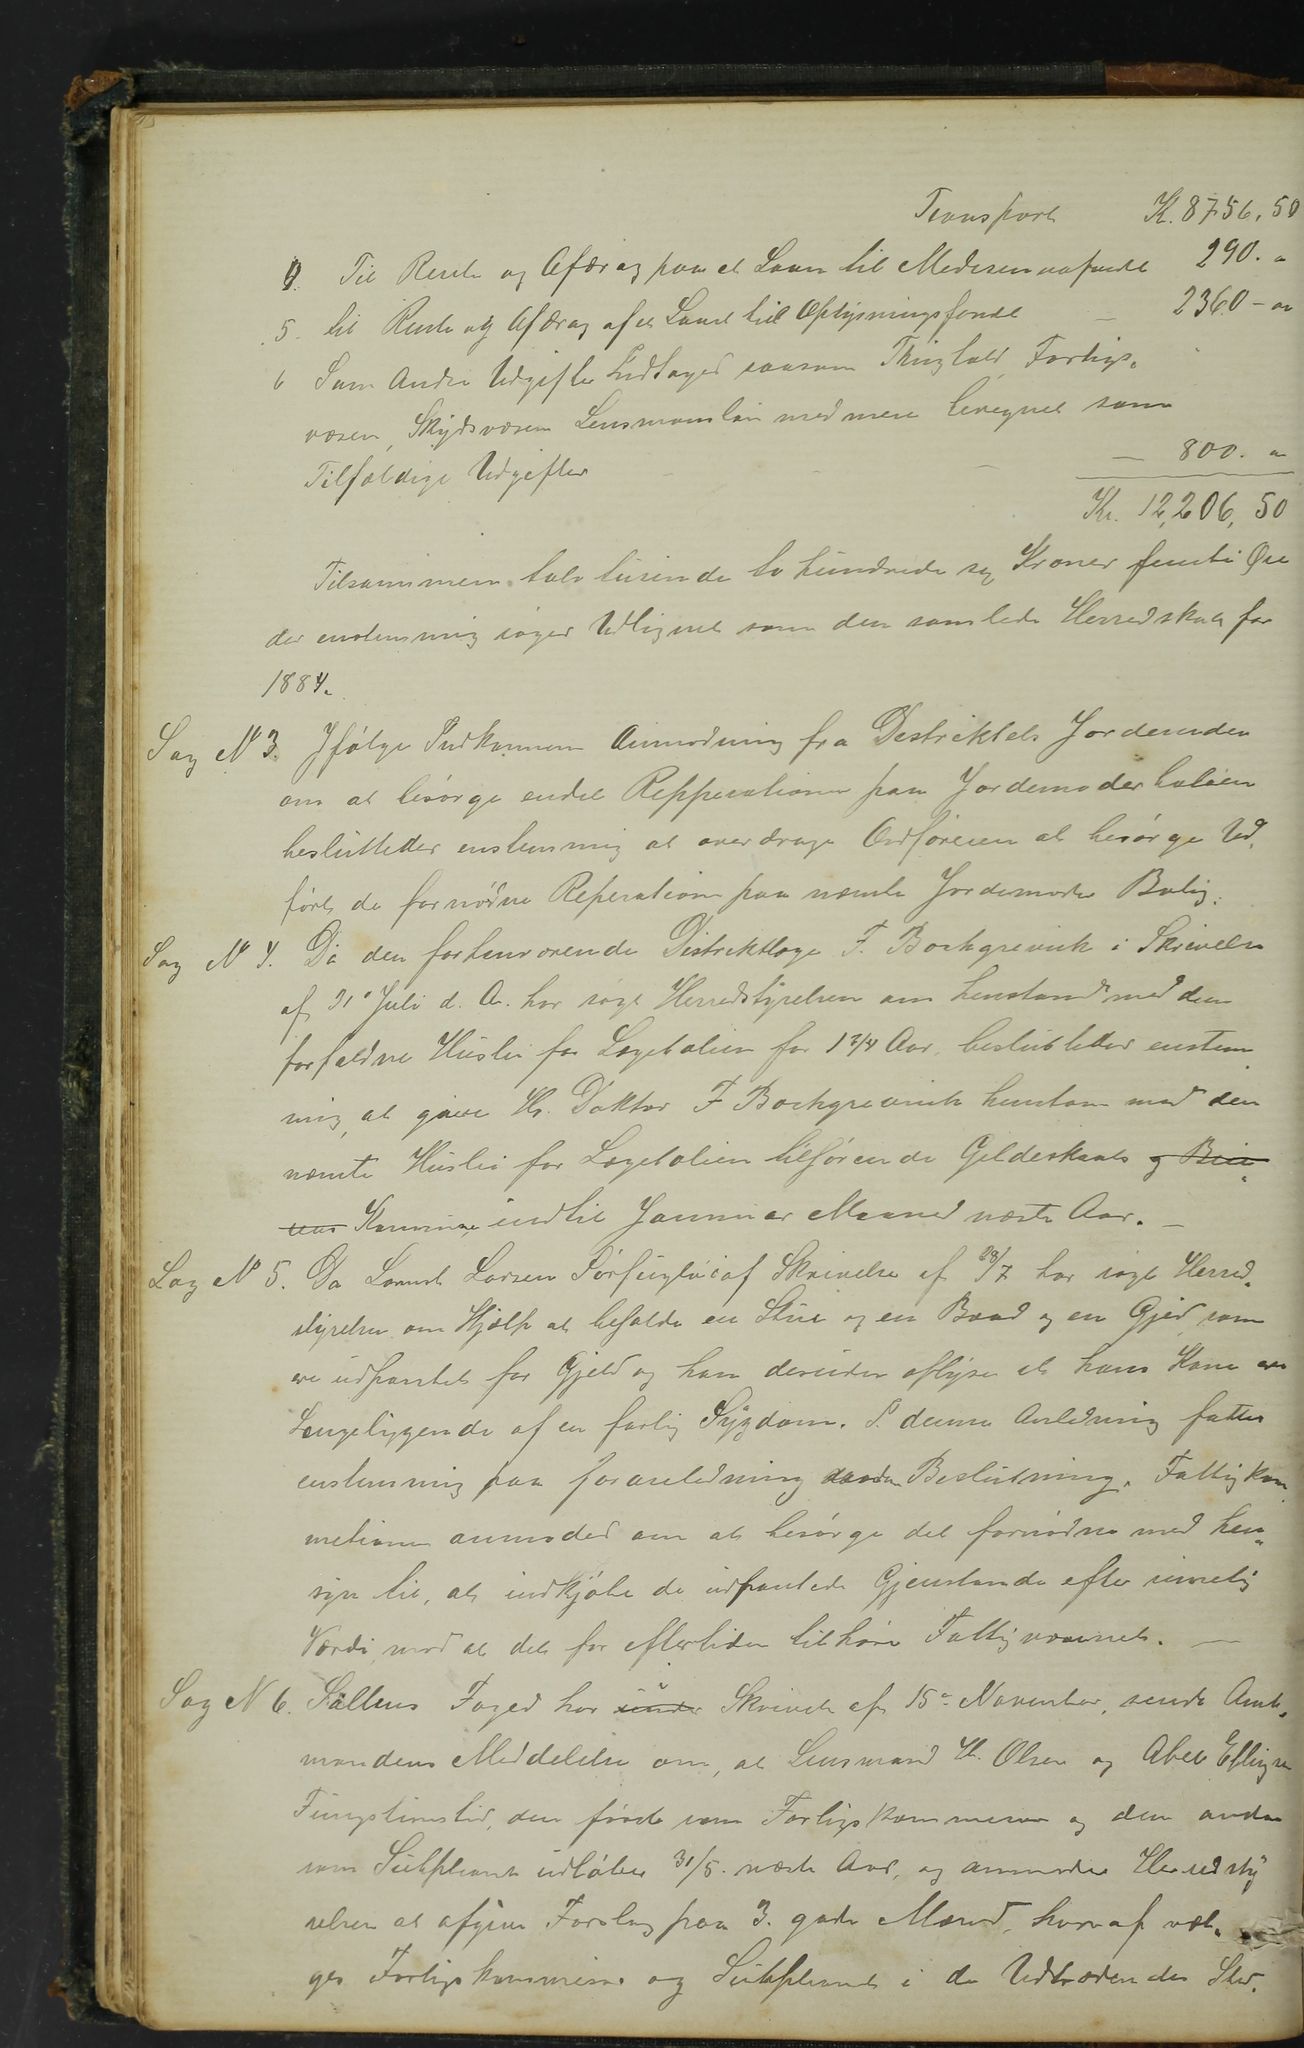 Transport K. 8756,50
4. Til Rente og Afdrag paa et Laan til Medesinaafondt 290. "
5. til Rente og Afdrag af et Laant till Oplysningsfondt — 2360 - "
6 Som Andre Udgifter Indtages saasom Thinghold, Forligs-
væsen, Skydsvæsen Lensmansløn med mere beregnet som
Tilfældige Udgifter — 800. "
Kr. 12,206,50
Tilsammen tolv tusinde to hundrede sex Kroner femti Øre
der enstemmig søges Udlignet som den samlede Herredskat for
1884.
Sag N 3. Ifølge Indkommen Anmodning fra Destriktets Jordemoder
om at besørge endel Repperationer paa Jordemoderboligen
besluttedes enstemmig at overdrage Ordføreren at besørge Ud-
ført de fornødne Reperationer paa nemte Jordemoder Bolig.
Sag N 4. Da den forhenværende Distriktlæge F. Borchgrevink i Skrivelse
af 31' Juli d. A. har søgt Herredstyrelsen om henstand med den
forfaldne Husleie for Lægebolien for 1 3/4 Aar, besluttedes enstem
mig, at give Hr. Doktor F Borchgrevink henstan med den
nemte Husleie for Lægebolien tilførende Gildeskaals og Beie-
rens Kommune indtil Januar Maaned næste Aar. —
Sag N 5. Da Lornts Larsen Sørfuglvig af Skrivelse af 28/7 har søgt Herred-
styrelsen om Hjælp at beholde en Stue og en Baad og en Gjed, som
ere udpantet for Gjeld og han desuden oplyser at hans Kone er
Sengeliggende af en farlig Sygdom. I denne Anledning fattes
enstemmig paa foranledning saadan Beslutning. Fattigkom
metionen anmodes om at besørge det fornødne med hen-
syn til, at indkjøbe de udpantede Gjenstande efter rimelig
Værdi, mod at det for eftertiden tilhøre Fattigvæsenet. —
Sag N 6. Saltens Foged har under i Skrivelse af 15de November, sendt Amt-
mandens Meddelelse om, at Lensmand H. Olsen og Abel Ellingsen
Fungtionstid, den første som Forligskommisær og den anden
som Subpleant udløber 31/5. næste Aar, og anmoder Herredsty
relsen at afgive Forslag paa 3. gode Mænd, hvoraf væl-
ges Forligskommisær og Subpleant i de Udtrædendes Sted.